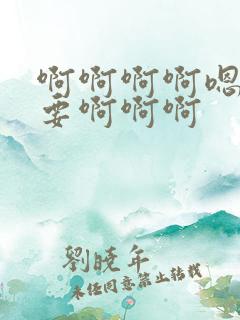 啊啊啊啊嗯
要啊啊啊
劉曉年
未经同意禁止转载